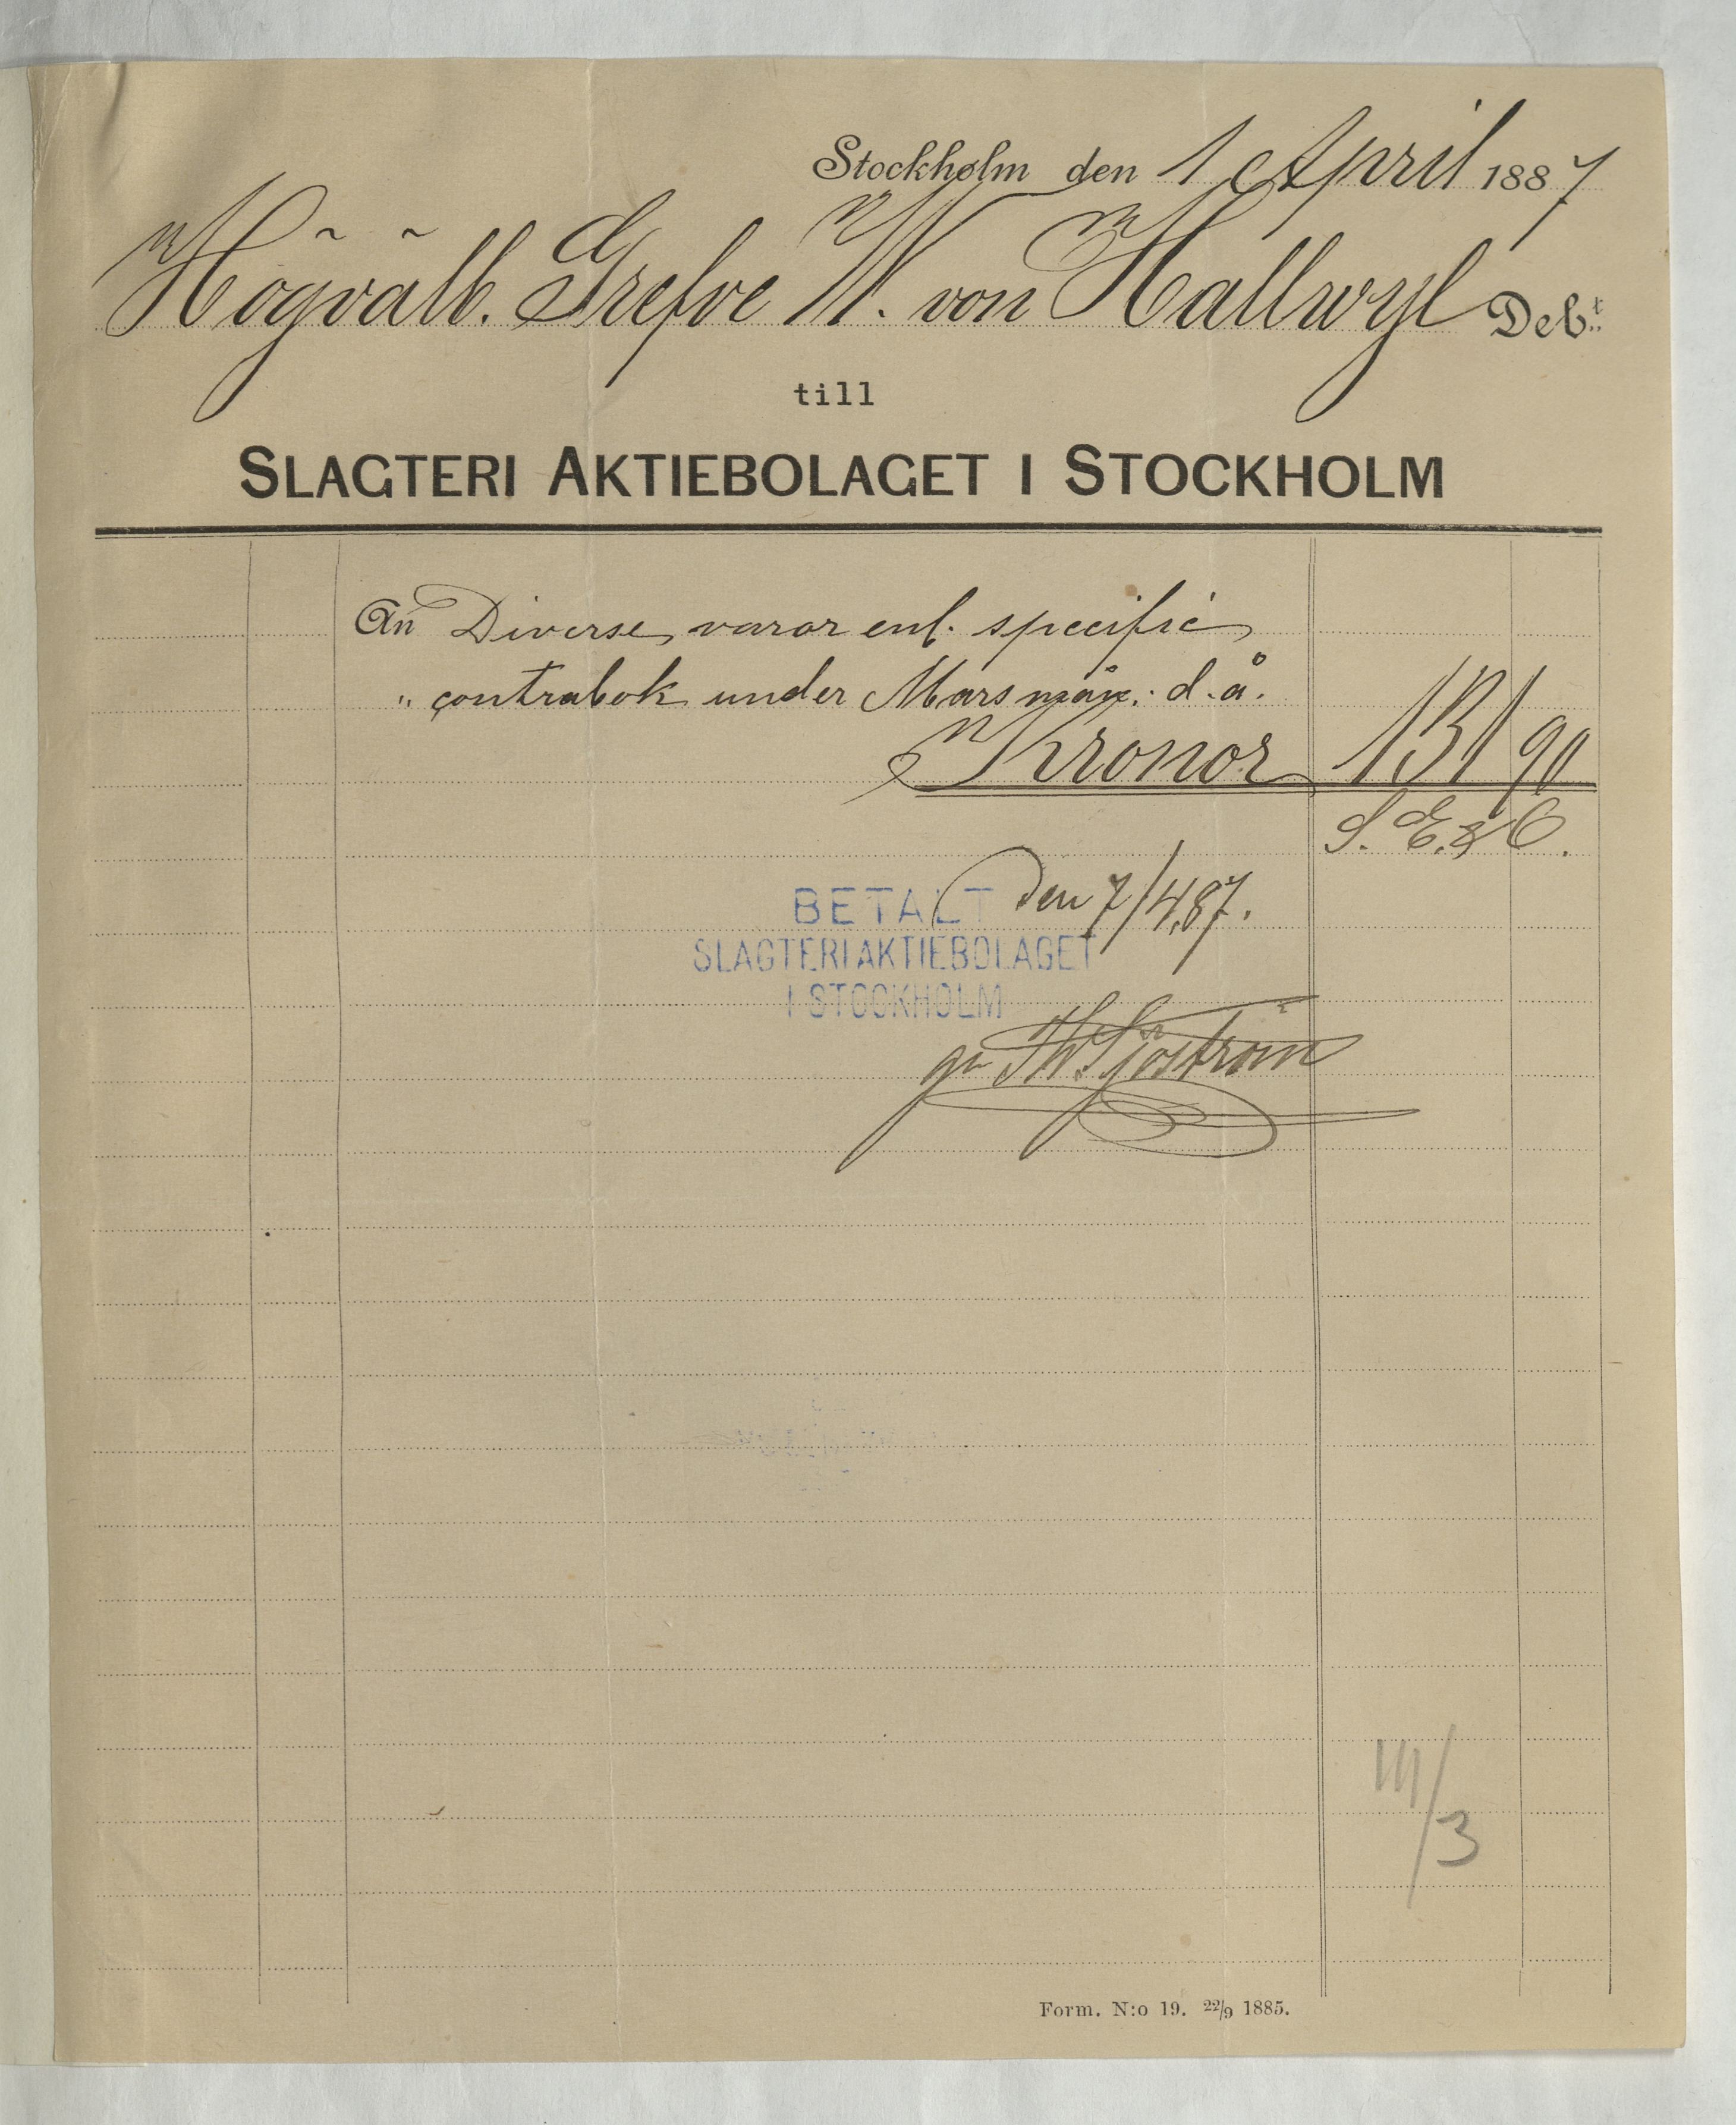 Stockholm den 1 April 1887
Högvälb. Grefve W. von Hallwyl Deb:t
till
SLAGTERI AKTIEBOLAGET I STOCKHOLM
An Diverse varor enl. specific
" contrabok under Mars mån. d.å.
Kronor 131 90
S. E. & O.
BETALT den 7/4 87.
SLAGTERIAKTIEBOLAGET
I STOCKHOLM
gm Th. Sjöström
III/3
Form. N:o 19. 22/9 1885.